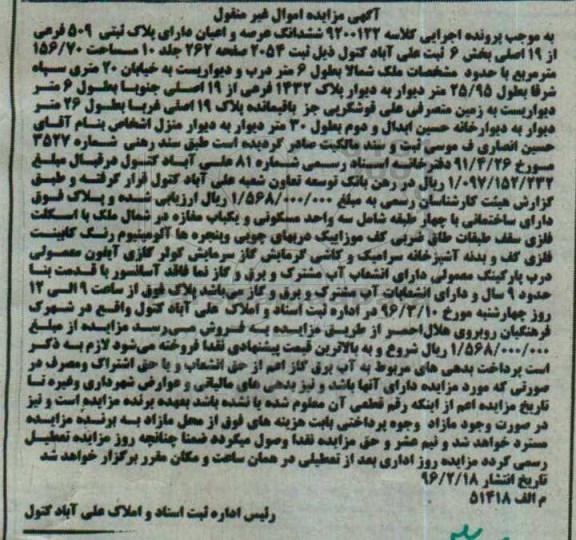 آگهی مزایده اموال غیر منقول
به موجب پرونده اجرایی کلاسه ۹۲۰۰۱۲۲ ششدانگ عرصه و اعیان دارای پلاک ثبتی ۵۰۹ فرعی
از ۱۹ اصلی بخش ۶ ثبت علی آباد کتول ذیل ثبت ۲۰۵۴ صفحه ۲۶۲ جلد ۱۰ مساحت ۱۵۶/۷۰
مترمربع با حدود مشخصات ملک شمالا بطول ۶ متر درب و دیواریست به خیابان ۲۰ متری سپاه
شرقا بطول ۲۵/۹۵ متر دیوار به دیوار پلاک ۱۴۳۲ فرعی از ۱۹ اصلی جنوبا بطول ۶ متر
دیواریست به زمین متصرفی علی قوشگریی جز باقیمانده پلاک ۱۹ اصلی غربا بطول ۲۶ متر
دیوار به دیوارخانه حسین ابدال و دوم بطول ۳۰ متر دیوار به دیوار منزل اشخاص بنام آقای
حسین انصاری ف موسی ثبت و سند مالکیت صادر گردیده است طبق سند رهنی شماره ۳۵۲۷
مورخ ۹۱/۴/۲۶ دفترخانه اسناد رسمی شماره ۸۱ علی آباد کتول درقبال مبلغ
۱/۰۹۷/۱۵۲/۲۳۲ ریال در رهن بانک توسعه تعاون شعبه علی آباد کتول قرار گرفته و طبق
گزارش هیئت کارشناسان رسمی به مبلغ ۱/۵۶۸/۰۰۰/۰۰۰ ریال ارزیابی شده و پلاک فوق
دارای ساختمانی با چهار طبقه شامل سه واحد مسکونی و یکباب مغازه در شمال ملک با اسکلت
فلزی سقف طبقات طاق ضربی کف موزاییک دربهای چوبی وپنجره ها آلومینیوم رنگ کابینت
فلزی کف و بدنه آشپزخانه سرامیک و کاشی گرمایش گاز سرمایش کولر گازی آیفون معمولی
درب پارکینگ معمولی دارای انشعاب آب مشترک و برق و گاز نما فاقد آسانسور با قدمت بنا
حدود ۹ سال و دارای انشعابات آب مشترک و برق و گاز می‌باشد پلاک فوق از ساعت ۹ الی ۱۲
روز چهارشنبه مورخ ۹۶/۳/۱۰ در اداره ثبت اسناد و املاک علی آباد کتول واقع در شهرک
فرهنگیان روبروی هلال‌احمر از طریق مزایده به فروش می‌رسد مزایده از مبلغ
۱/۵۶۸/۰۰۰/۰۰۰ ریال شروع و به بالاترین قیمت پیشنهادی نقدا فروخته می‌شود لازم به ذکر
است پرداخت بدهی های مربوط به آب برق گاز اعم از حق انشعاب و یا حق اشتراک ومصرف در
صورتی که مورد مزایده دارای آنها باشد و نیز بدهی های مالیاتی و عوارض شهرداری وغیره تا
تاریخ مزایده اعم از اینکه رقم قطعی آن معلوم شده یا نشده باشد بعهده برنده مزایده است و نیز
در صورت وجود مازاد وجوه پرداختی بابت هزینه های فوق از محل مازاد به برنده مزایده
مسترد خواهد شد و نیم عشر و حق مزایده نقدا وصول میگردد ضمنا چنانچه روز مزایده تعطیل
رسمی گردد مزایده روز اداری بعد از تعطیلی در همان ساعت و مکان مقرر برگزار خواهد شد
تاریخ انتشار ۹۶/۲/۱۸
م الف ۵۱۴۱۸
رئیس اداره ثبت اسناد و املاک علی آباد کتول